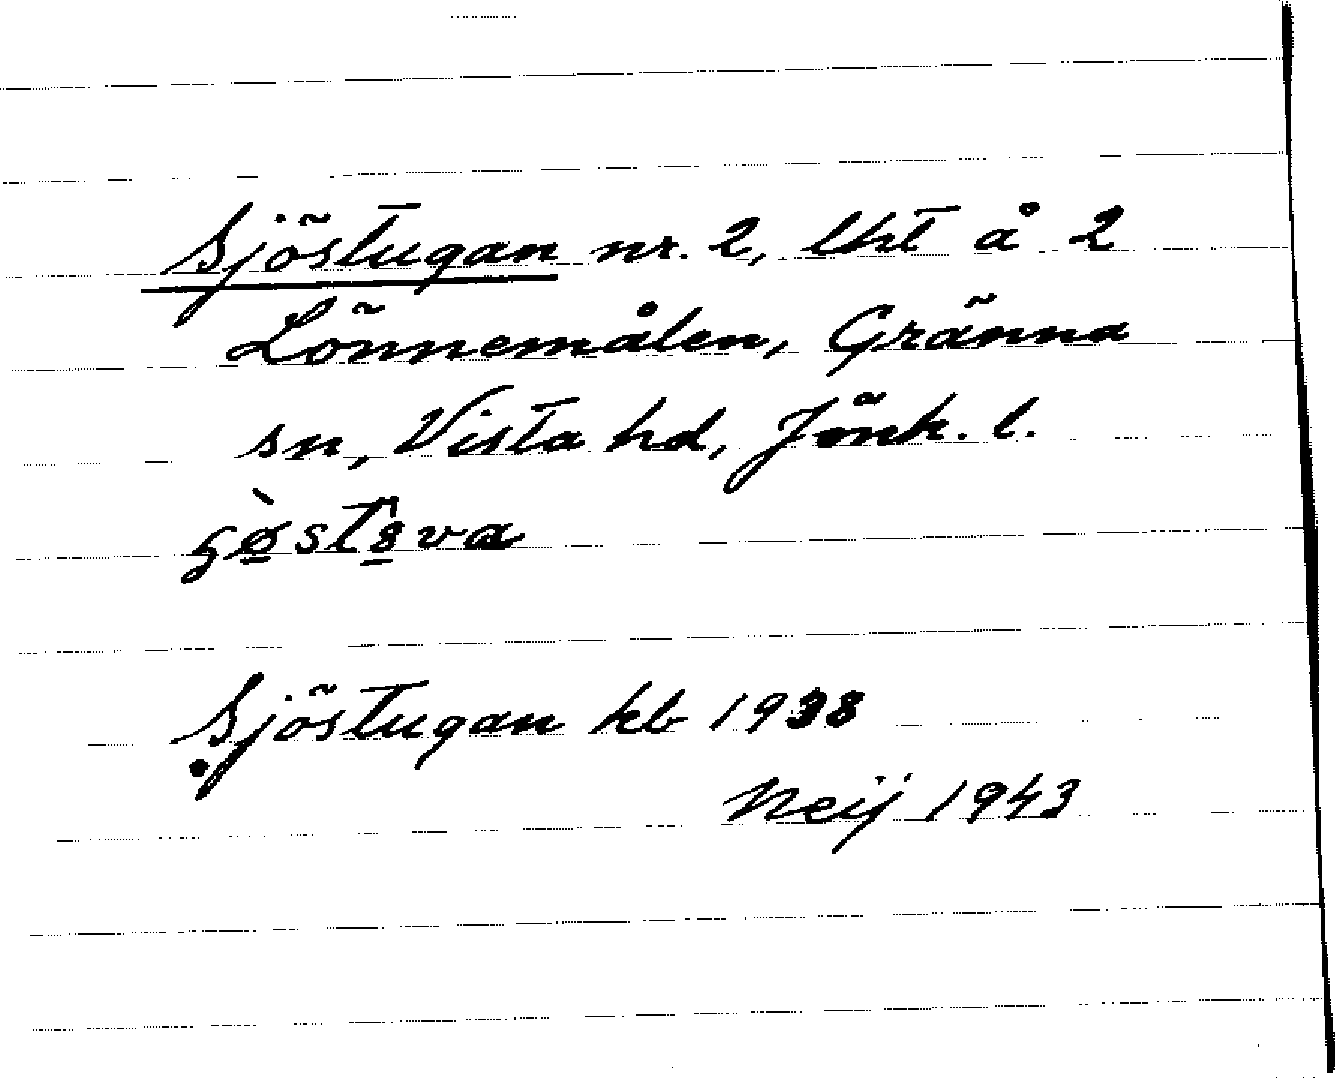 Sjöstugan nr. 2, lht å 2
Lönnemålen, Gränna
sn, Vista hd, Jönk. l.
Sjöstugan kb 1938
Neij 1943